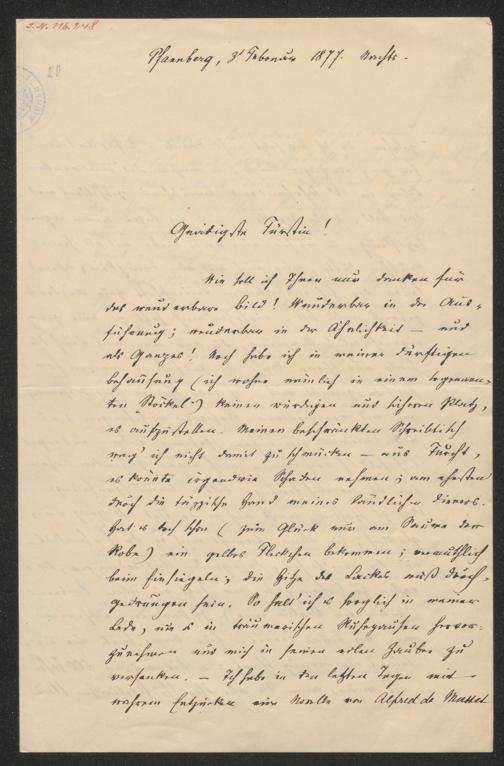 I.N. 116.248
Pfannberg, 3t Februar 1877. Nachts.
Gnädigste Fürstin!
Wie soll ich Ihnen nur danken für
das wunderbare Bild! Wunderbar in der Aus-
führung; wunderbar in der Ähnlichkeit — und
als Ganzes! Noch habe ich in meiner dürftigen
Behausung (ich wohne nämlich in einem sogenann-
ten „Stöckel") keinen würdigen und sicheren Platz,
es aufzustellen. Meinen beschränkten Schreibtisch
mag' ich nicht damit zu schmücken — aus Furcht,
es könnte irgendwie Schaden nehmen; am ehesten
durch die täppische Hand meines ländlichen Dieners.
Hat es doch schon (zum Glück nur am Saume der
Robe) ein gelbes Fleckchen bekommen; vermuthlich
beim Einsiegeln; die Hitze des Lackes muß durch-
gedrungen sein. So halt' ich es sorglich in meiner
Lade, um es in träumerischen Ruhepausen hervor-
zunehmen und mich in seinen edlen Zauber zu
versenken. — Ich habe in den letzten Tagen mit
wahrem Entzücken eine Novelle von Alfred de Musset